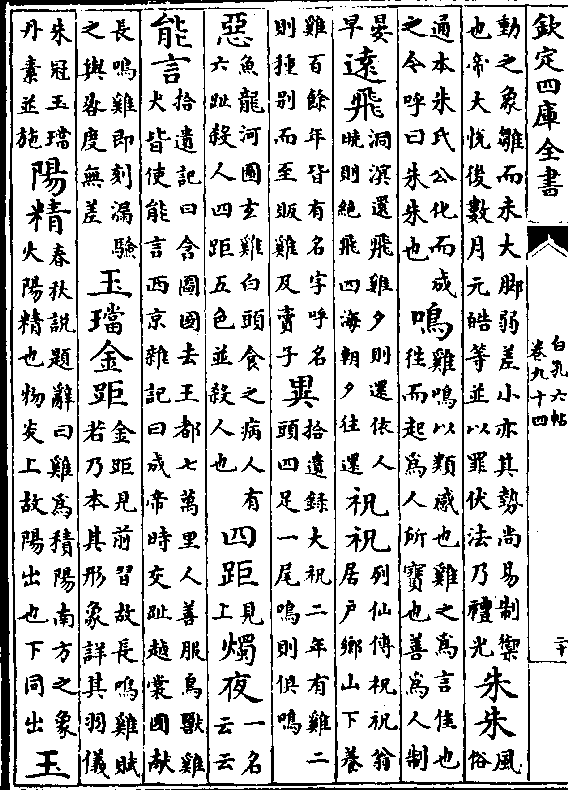 欽定四庫全書
白孔六帖
卷九十四
二十
動之象雛而未大脚弱差小亦其勢尚易制禦
也帝大悅後數月元皓等並以罪伏法乃禮光
朱朱
風
俗
通本朱氏公化而成
之今呼曰朱朱也
鳴
雞鳴以類感也雞之爲言佳也
往而起爲人所寶也善爲人制
晏
早
遠飛
洞溟還飛雞夕則還依人
曉則絶飛四海朝夕往還
祝祝
列仙傳祝祝翁
居尸鄉山下養
雞百餘年皆有名字呼名
則種别而至販雞及賣子
異
拾遺錄大祝二年有雞二
頭四足一尾鳴則俱鳴
惡
魚龍河圖玄雞白頭食之病人有
六趾殺人四距五色並殺人也
四距
見
上
燭夜
一名
云云
能言
拾遺記曰含圖國去王都七萬里人善服鳥獸雞
犬皆使能言西京雜記曰成帝時交趾越裳國献
長鳴雞即刻漏驗
之與晷度無差
玉璫金距
金距見前習故長鳴雞賦
若乃本其形象詳其羽儀
朱冠玉璫
丹素並施
陽精
春秋說題辭曰雞爲積陽南方之象
火陽精也物炎上故陽出也下同出
玉